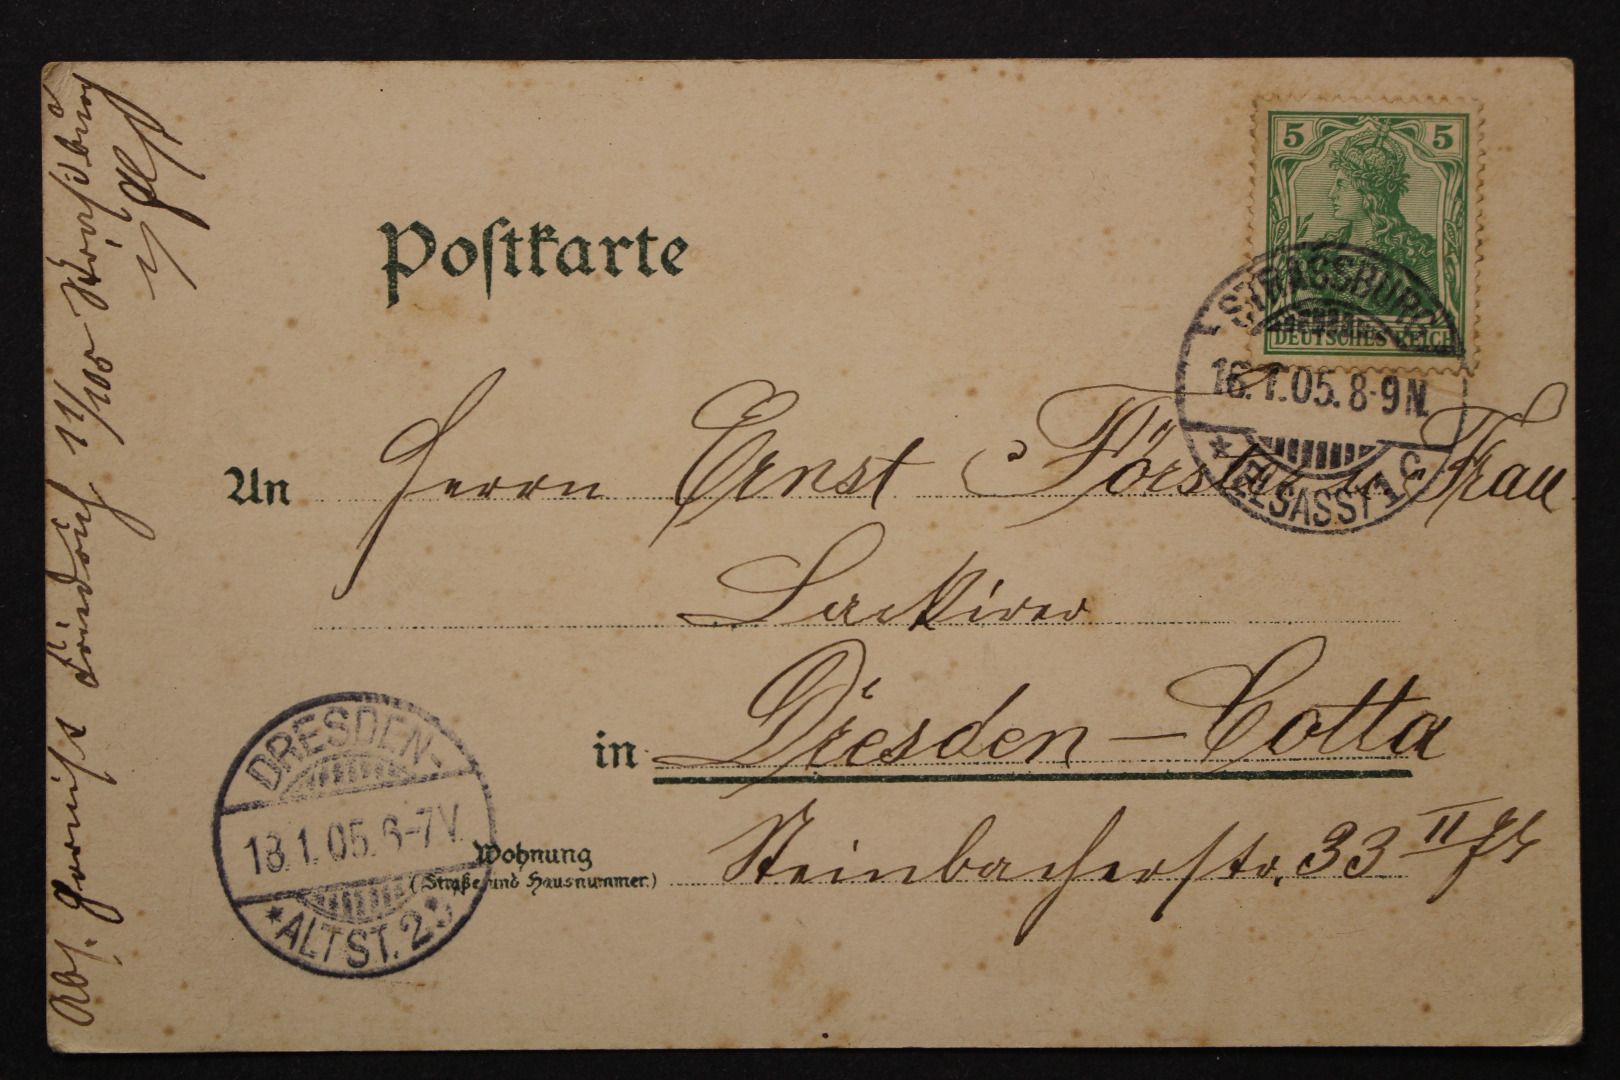 Postkarte
5 5
DEUTSCHES REICH
STRASSBURG
16.1.05.8-9N.
* (ELSASS) 1 c
An Herrn Ernst Förster u. Frau
Lackirer
in Dresden-Cotta
Wohnung
(Straße und Hausnummer.)
Steinbacherstr. 33 II
DRESDEN-
18.1.05.6-7V.
*ALTST. 23
Abs. Friedrich Straßburg
i/Els